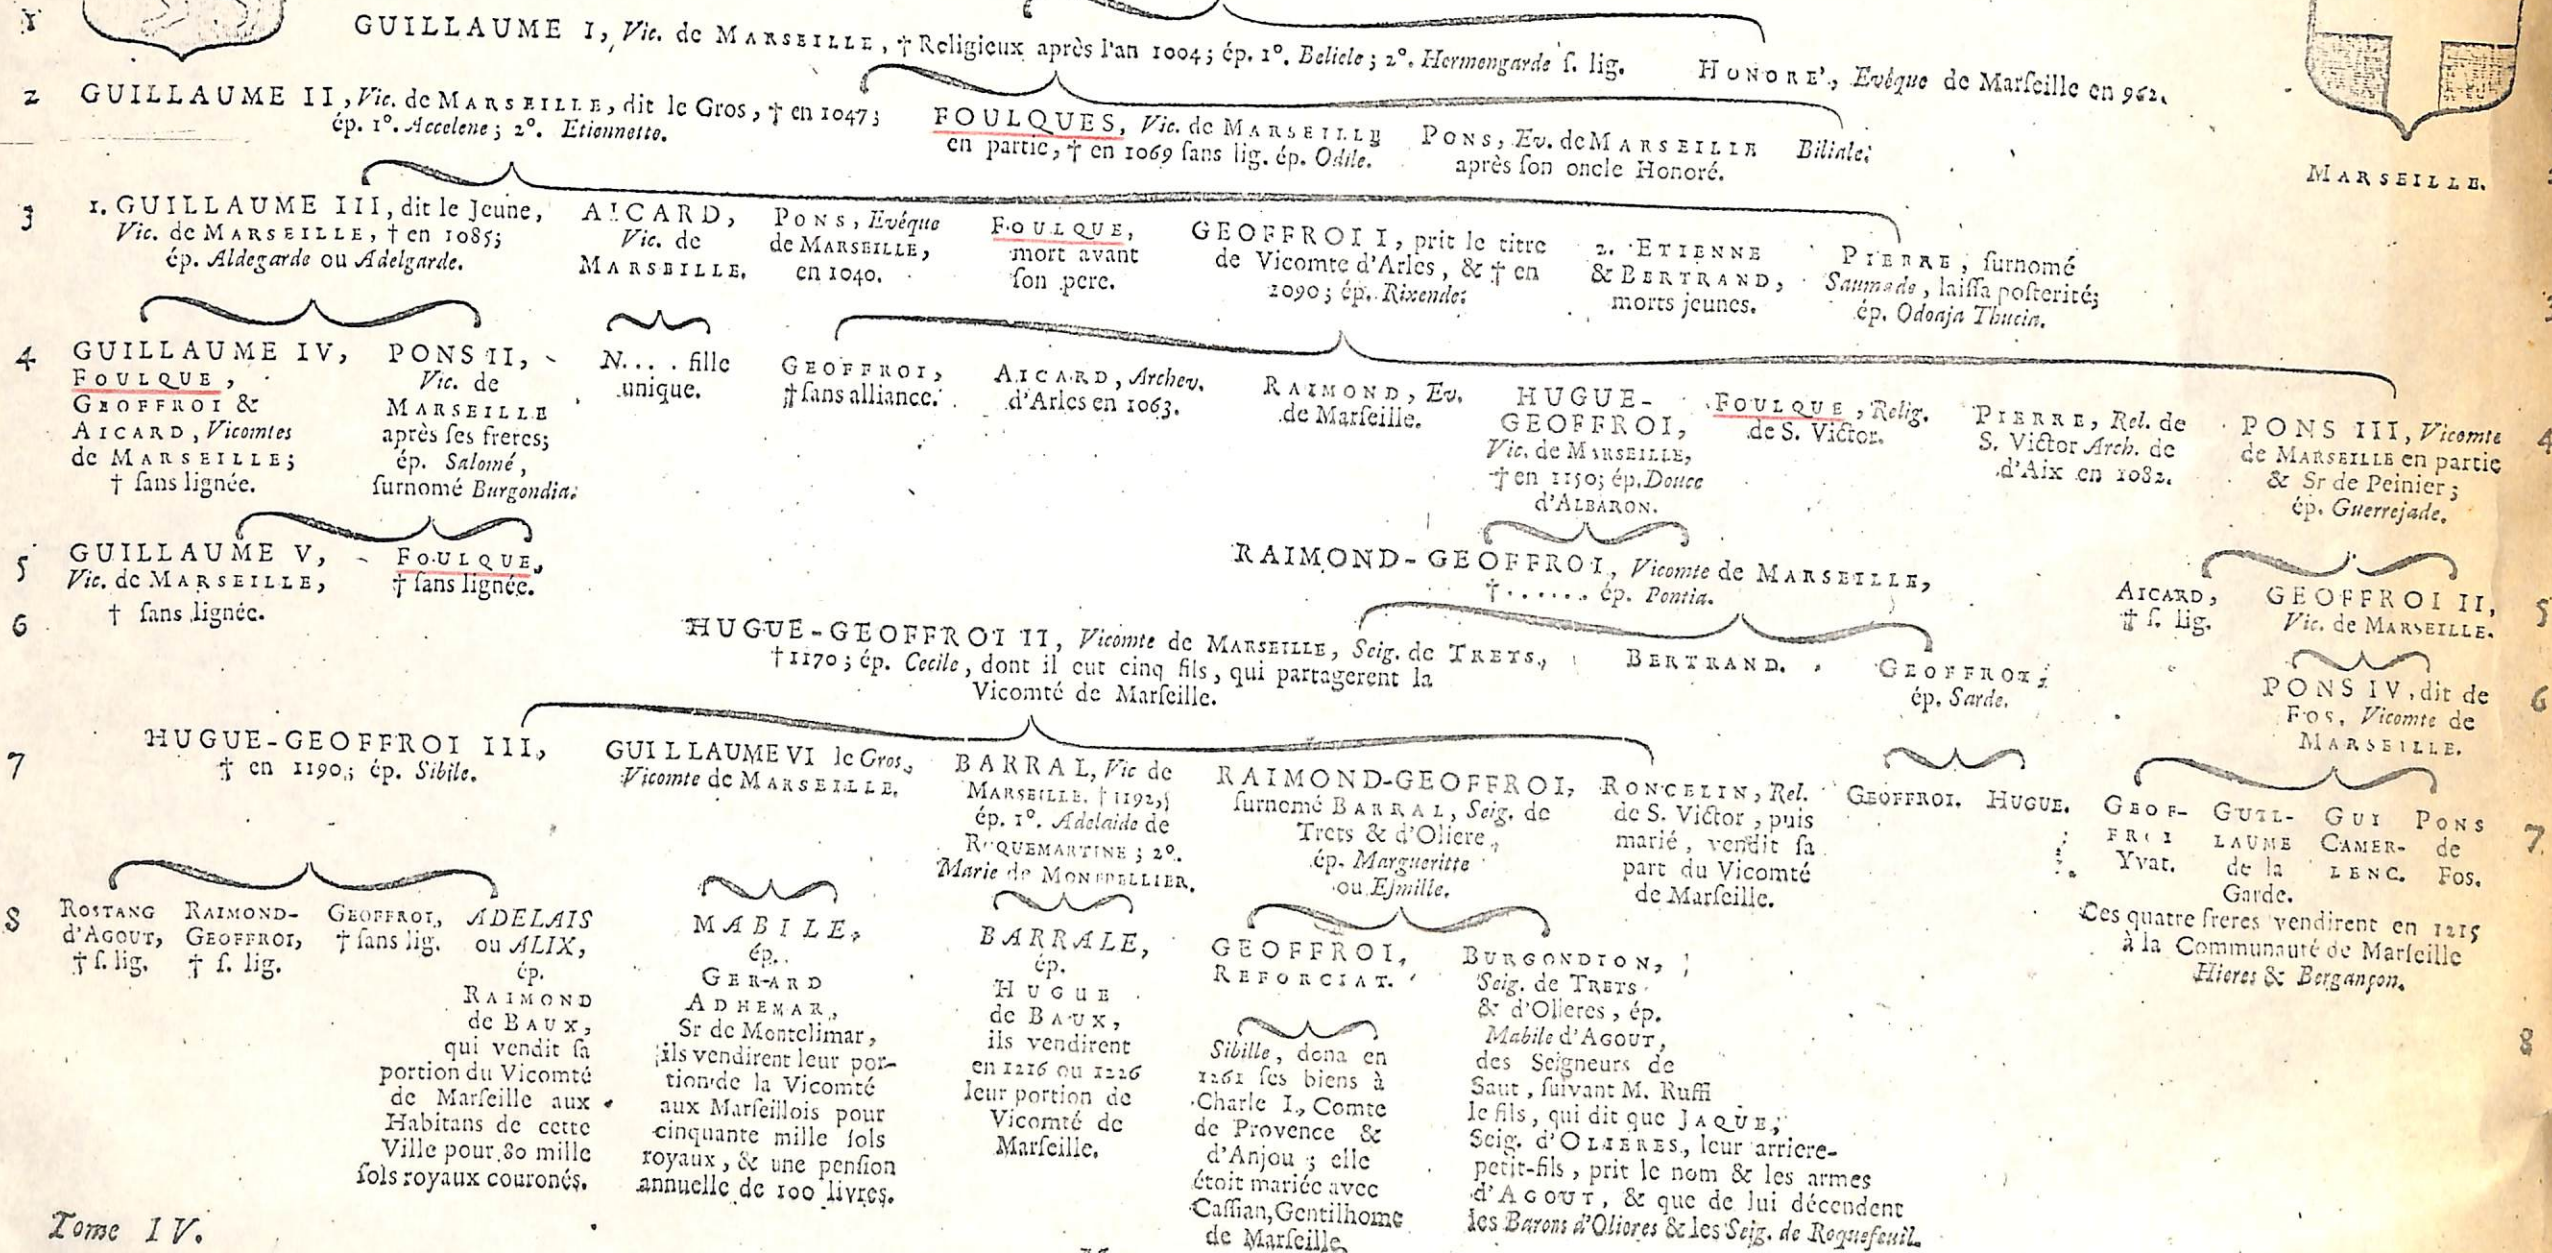 1
GUILLAUME I, Vic. de MARSEILLE, † Religieux après l'an 1004; ép. 1°. Belicle; 2°. Hermengarde ſ. lig.
HONORE', Evêque de Marſeille en 962.
MARSEILLE.
2
GUILLAUME II, Vic. de MARSEILLE, dit le Gros, † en 1047;
ép. 1°. Accelene; 2°. Etiennette.
FOULQUES, Vic. de MARSEILLE
en partie, † en 1069 ſans lig. ép. Odile.
PONS, Ev. de MARSEILLE
après ſon oncle Honoré.
Biliale:
3
1. GUILLAUME III, dit le Jeune,
Vic. de MARSEILLE, † en 1085;
ép. Aldegarde ou Adelgarde.
AICARD,
Vic. de
MARSEILLE.
PONS, Evêque
de MARSEILLE,
en 1040.
FOULQUE,
mort avant
ſon pere.
GEOFFROI I, prit le titre
de Vicomte d'Arles, & † en
1090; ép. Rixende:
2. ETIENNE
& BERTRAND,
morts jeunes.
PIERRE, ſurnomé
Saumade, laiſſa poſterité;
ép. Odoaja Thucia.
4
GUILLAUME IV,
FOULQUE,
GEOFFROI &
AICARD, Vicomtes
de MARSEILLE;
† ſans lignée.
PONS II,
Vic. de
MARSEILLE
après ſes freres;
ép. Salomé,
ſurnomé Burgondia:
N.... fille
unique.
GEOFFROI,
† ſans alliance.
AICARD, Archev.
d'Arles en 1063.
RAIMOND, Ev.
de Marſeille.
HUGUE-
GEOFFROI,
Vic. de MARSEILLE,
† en 1150; ép. Douce
d'ALBARON.
FOULQUE, Relig.
de S. Victor.
PIERRE, Rel. de
S. Victor Arch. de
d'Aix en 1082.
PONS III, Vicomte
de MARSEILLE en partie
& Sr de Peinier;
ép. Guerrejade.
4
5
GUILLAUME V,
Vic. de MARSEILLE,
† ſans lignée.
FOULQUE,
† ſans lignée.
RAIMOND-GEOFFROI, Vicomte de MARSEILLE,
†...... ép. Pontia.
AICARD,
† ſ. lig.
GEOFFROI II,
Vic. de MARSEILLE.
5
6
HUGUE-GEOFFROI II, Vicomte de MARSEILLE, Seig. de TRETS,
† 1170; ép. Cecile, dont il eut cinq fils, qui partagerent la
Vicomté de Marſeille.
BERTRAND.
GEOFFROI;
ép. Sarde.
PONS IV, dit de
FOS, Vicomte de
MARSEILLE.
6
7
HUGUE-GEOFFROI III,
† en 1190; ép. Sibile.
GUILLAUME VI le Gros,
Vicomte de MARSEILLE.
BARRAL, Vic de
MARSEILLE. † 1192;
ép. 1°. Adelaide de
ROQUEMARTINE; 2°.
Marie de MONTPELLIER.
RAIMOND-GEOFFROI,
ſurnomé BARRAL, Seig. de
Trets & d'Oliere,
ép. Margueritte
ou Ejmille.
RONCELIN, Rel.
de S. Victor, puis
marié, vendit ſa
part du Vicomté
de Marſeille.
GEOFFROI. HUGUE.
GEOF-
FROI
Yvat.
GUIL-
LAUME
de la
Garde.
GUI
CAMER-
LENC.
PONS
de
Fos.
7
Ces quatre freres vendirent en 1215
à la Communauté de Marſeille
Hieres & Bergançon.
8
ROSTANG
d'AGOUT,
† ſ. lig.
RAIMOND-
GEOFFROI,
† ſ. lig.
GEOFFROI,
† ſans lig.
ADELAIS
ou ALIX,
ép.
RAIMOND
de BAUX,
qui vendit ſa
portion du Vicomté
de Marſeille aux
Habitans de cette
Ville pour 80 mille
ſols royaux couronés.
MABILE,
ép.
GERARD
ADHEMAR,
Sr de Montelimar,
ils vendirent leur por-
tion de la Vicomté
aux Marſeillois pour
cinquante mille ſols
royaux, & une penſion
annuelle de 100 livres.
BARRALE,
ép.
HUGUE
de BAUX,
ils vendirent
en 1216 ou 1226
leur portion de
Vicomté de
Marſeille.
GEOFFROI,
REFORCIAT.
Sibille, dona en
1261 ſes biens à
Charle I., Comte
de Provence &
d'Anjou; elle
étoit mariée avec
Caſſian, Gentilhome
de Marſeille
BURGONDION,
Seig. de TRETS
& d'Olieres, ép.
Mabile d'AGOUT,
des Seigneurs de
Saut, ſuivant M. Ruffi
le fils, qui dit que JAQUE,
Seig. d'OLIERES, leur arriere-
petit-fils, prit le nom & les armes
d'AGOUT, & que de lui décendent
les Barons d'Olieres & les Seig. de Roquefeuil.
8
Tome IV.